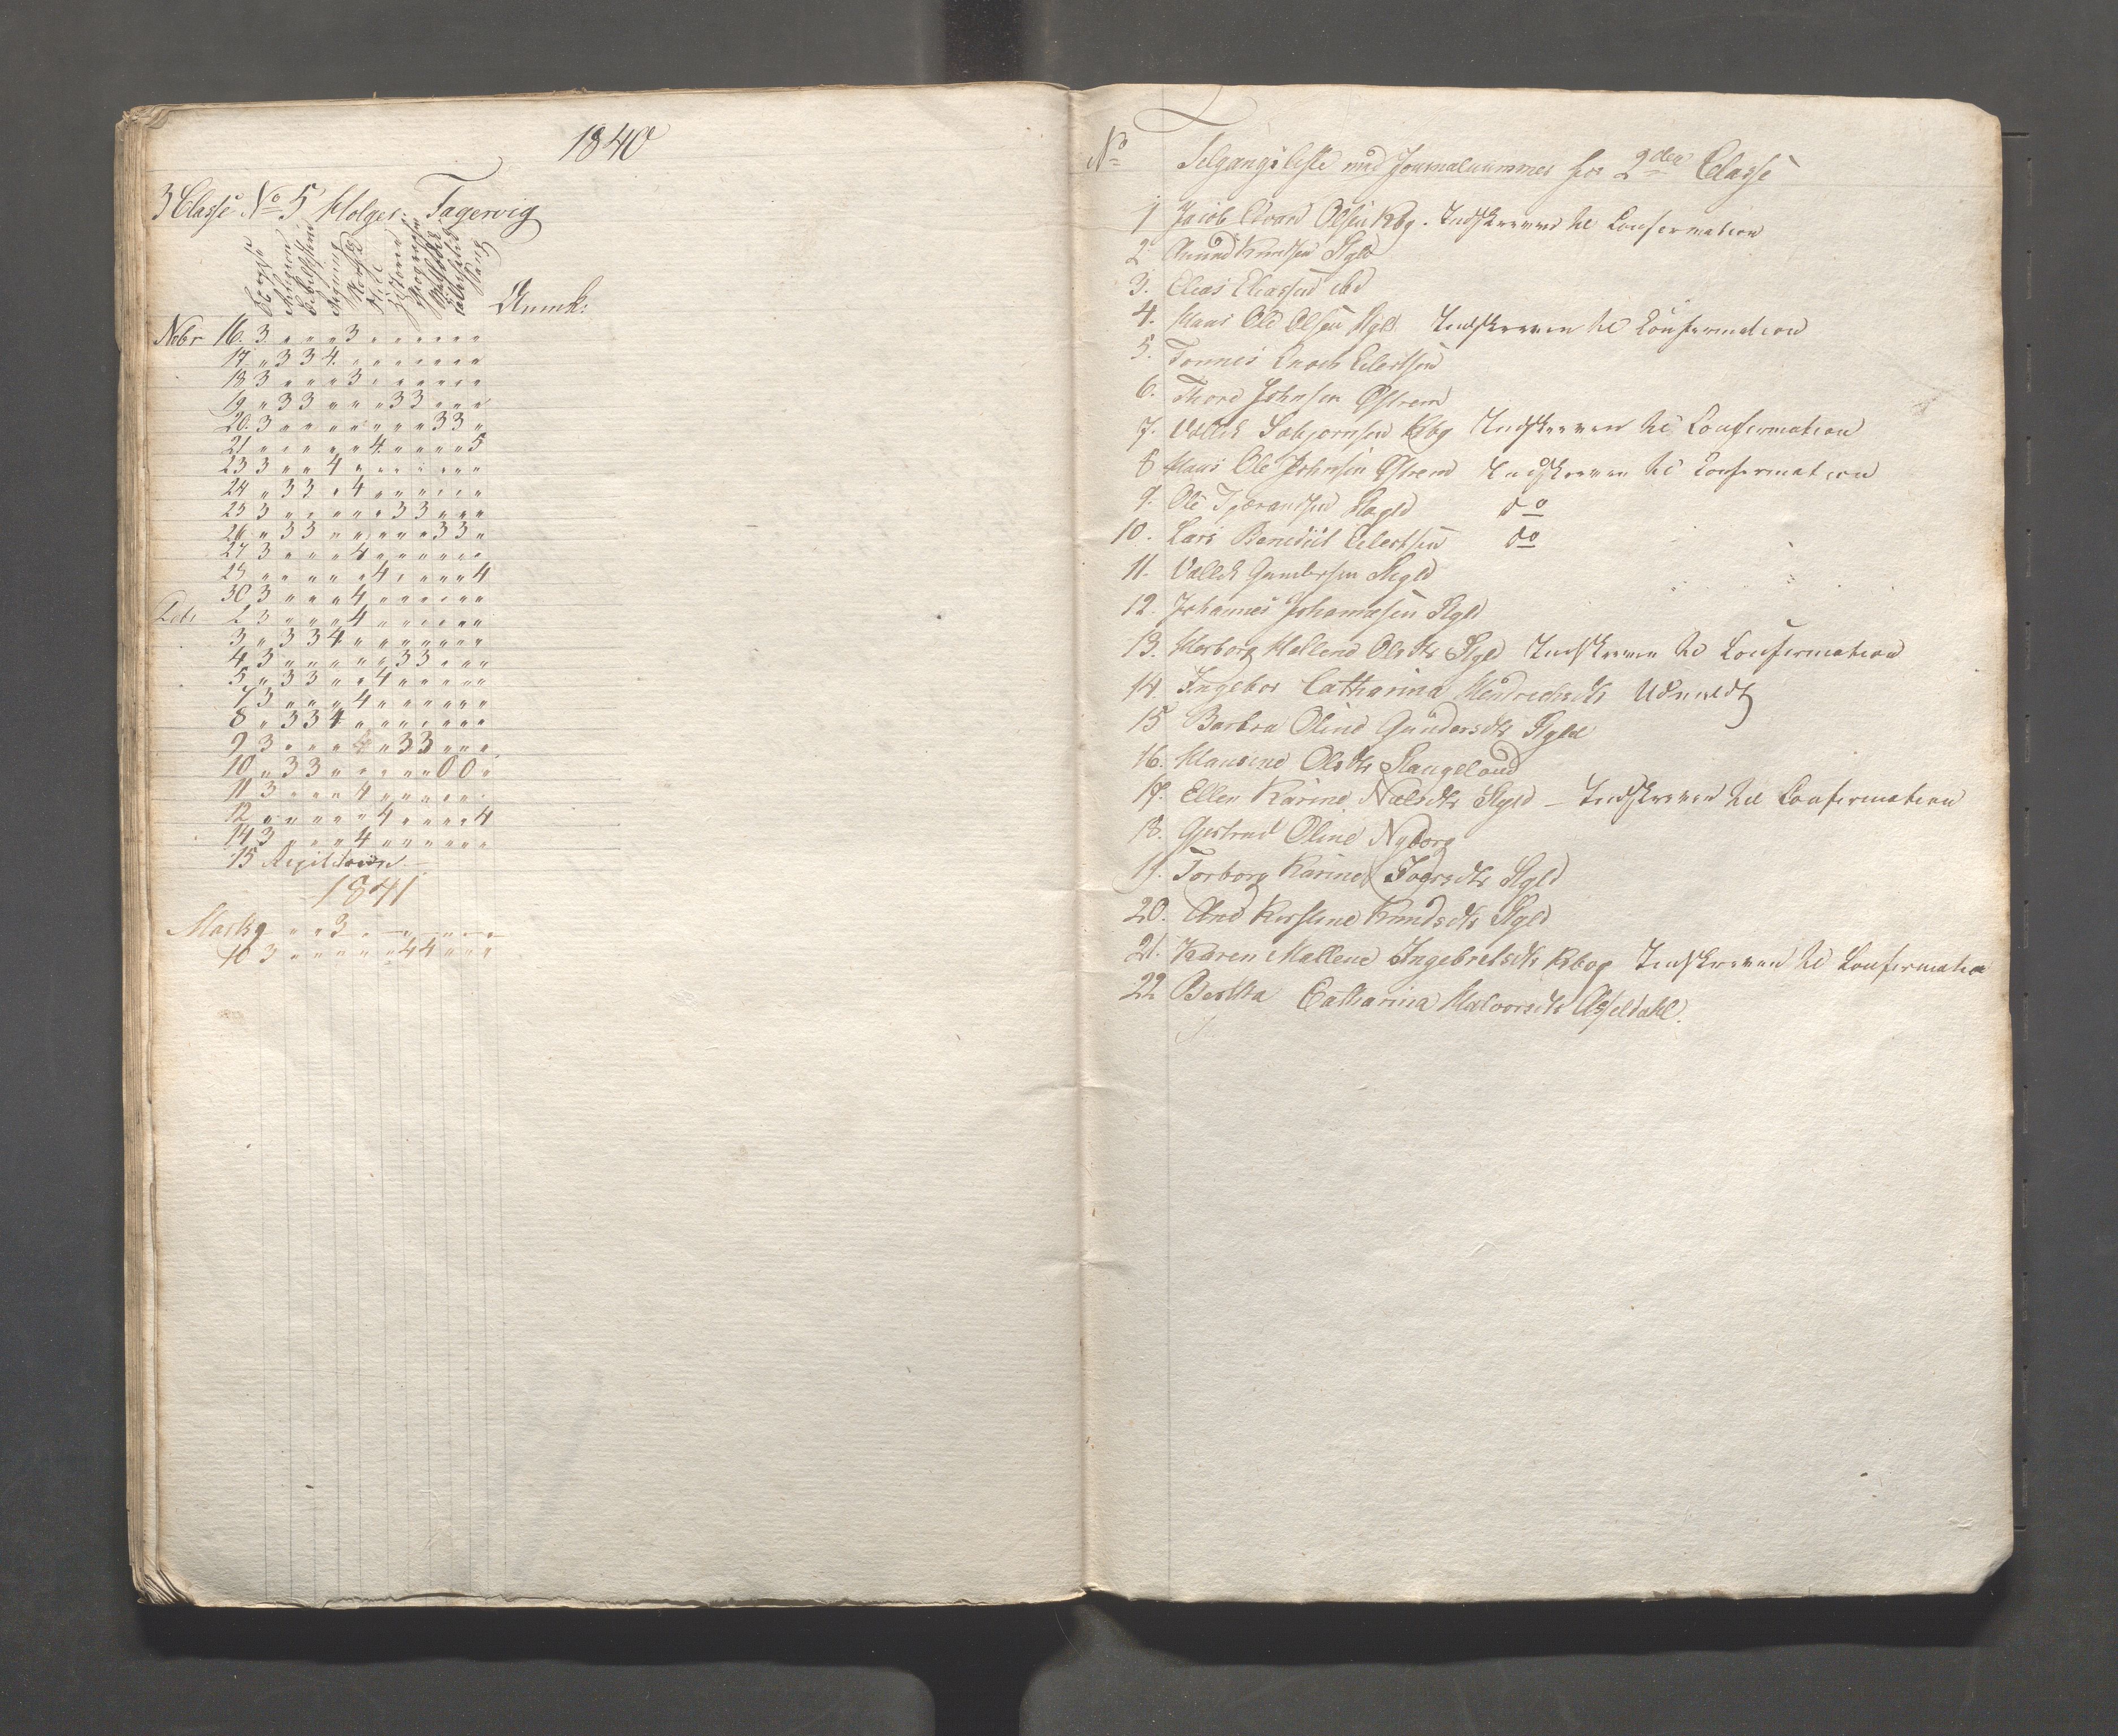 1840
3 Classe No 5 Holger Fagervig
Religion
Sang
Anmk:
Nobr 16. 3 " " " 3 " " " " " "
17 " 3 3 4 " " " " " " "
18 3 " " " 3 " " " " " "
19 " 3 3 " " " 3 3 " " "
20. 3 " " " " " " " 3 3 "
21 " " " " " 4 " " " " 5
23 3 " " 4 " " " " " " "
24 " 3 3 " 4 " " " " " "
25 3 " " " " " 3 3 " " "
26 " 3 3 " " " " " 3 3 "
27 3 " " " 4 " " " " " "
28 " " " " " 4 " " " " 4
30 3 " " " 4 " " " " " "
Debr 2 3 " " " 4 " " " " " "
3 " 3 3 4 " " " " " " "
4 3 " " " " " 3 3 " " "
5 " 3 3 " " 4 " " " " "
7 3 " " " 4 " " " " " "
8 " 3 3 4 " " " " " " "
9 3 " " " 4 " 3 3 " " "
10 " 3 3 " " " " " 0 0 "
11 3 " " " 4 " " " " " "
12 " " " " " 4 " " " " 4
14 3 " " " 4 " " " " " "
15
1841
Marts 9 " " 3 " " " " " "
10 3 " " " " " 4 4 " " "
No Tilgangsliste med Journalnummer for 2den Classe
1 Jacob Edvard Olsen Kbg. Indskreven til Confirmation
2 Amund Knudsen Sgld
3. Elias Eliassen ibd
4. Hans Ole Olsen Sgld Indskreven til Confirmation
5. Tønnes Enoch Eilertsen
6. Thore Johnsen Østrem
7. Vallek Torbjørnsen Kbg Indskreven til Confirmation
8 Hans Ole Johnsen Østrem Indskreven til Confirmation
9. Ole Tjerandsen Sgld do
10. Lars Benedict Eilertsen do
11. Vallek Gundersen Sgld
12. Johannes Johannesen Sgld
13. Marborg Mallene Olsdtr Sgld Indskreven til Confirmation
14 Ingebor Catharina Hendrichsdtr Udmeldt
15 Barbra Oline Gundersdtr Sgld
16. Hansine Olsdtr Stangeland
17. Ellen Karine Nielsdtr Sgld – Indskreven til Confirmation
18. Gjertrud Oline Nyborg
19. Torborg Karine Toresdtr Sgld
20. Ane Kirstine Knudsdtr Sgld
21. Karen Mallene Ingebretsdtr Kbg Indskreven til Confirmation
22 Bertha Catharina Halvorsdtr